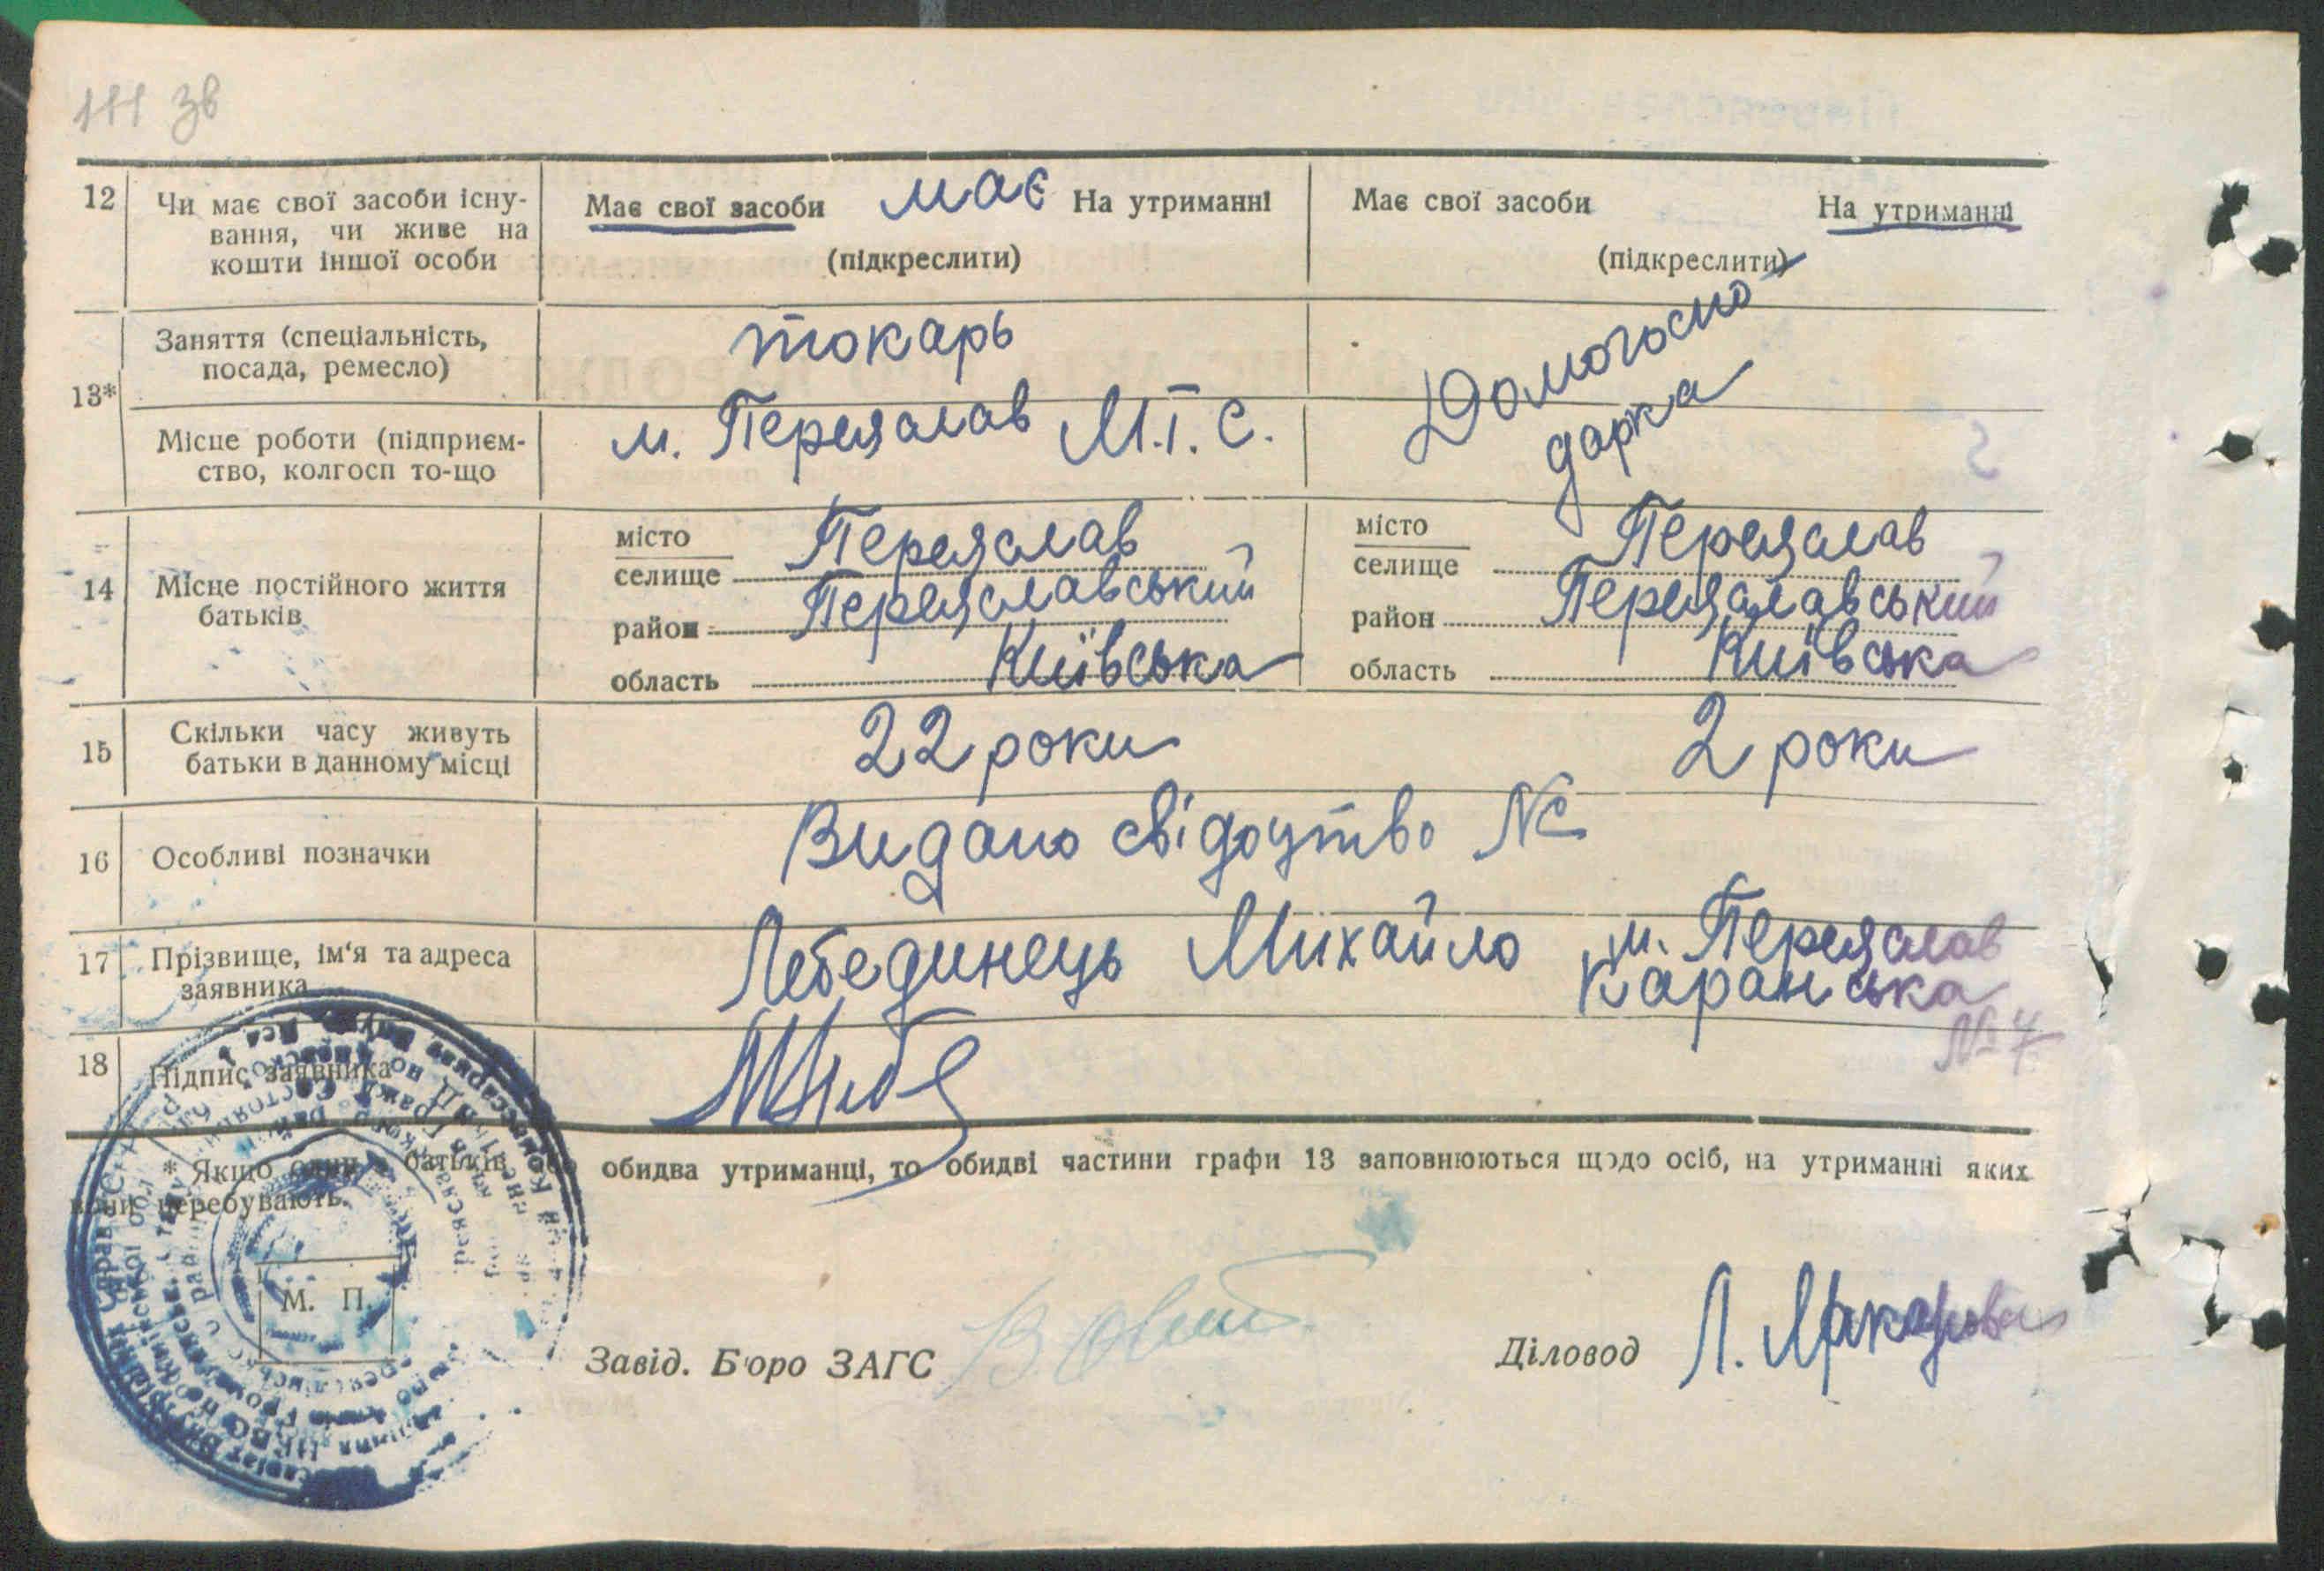 111 зв
12 Чи має свої засоби існу-
вання, чи живе на
кошти іншої особи
Має свої засоби має На утриманні
(підкреслити)
Має свої засоби На утриманні
(підкреслити)
13*
Заняття (спеціальність,
посада, ремесло)
токарь
Домогоспо-
дарка
Місце роботи (підприєм-
ство, колгосп то-що
м. Переяслав М.Т.С.
14 Місце постійного життя
батьків
місто
селище Переяслав
район Переяславський
область Київська
місто
селище Переяслав
район Переяславський
область Київська
15 Скільки часу живуть
батьки в данному місці
22 роки
2 роки
16 Особливі позначки
Видано свідоцтво №
17 Прізвище, ім'я та адреса
заявника
Лебединець Михайло м. Переяслав
Каранська
№ 7
18 Підпис заявника
* Якщо один з батьків або обидва утриманці, то обидві частини графи 13 заповнюються щодо осіб, на утриманні яких
вони перебувають.
М. П.
Завід. Б'юро ЗАГС
Діловод Л. Макарова